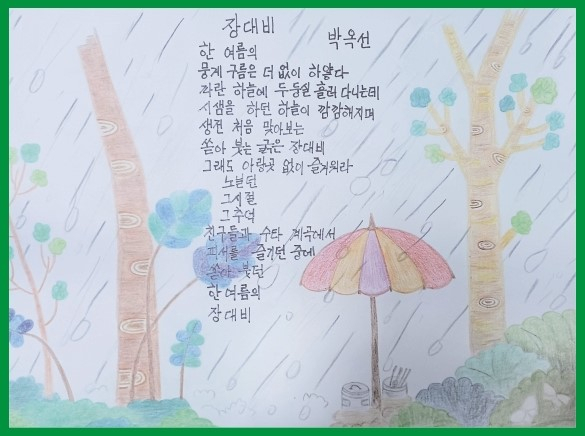 장대비
박옥선
한 여름의
뭉게 구름은 더 없이 하얗다
파란 하늘에 두둥실 흘러 다니는데
시샘을 하던 하늘이 깜깜해지며
생전 처음 맞아보는
쏟아 붓는 굵은 장대비
그래도 아랑곳 없이 즐거워라
노닐던
그시절
그추억
친구들과 수타 계곡에서
피서를 즐기던 중에
쏟아 붓던
한 여름의
장대비